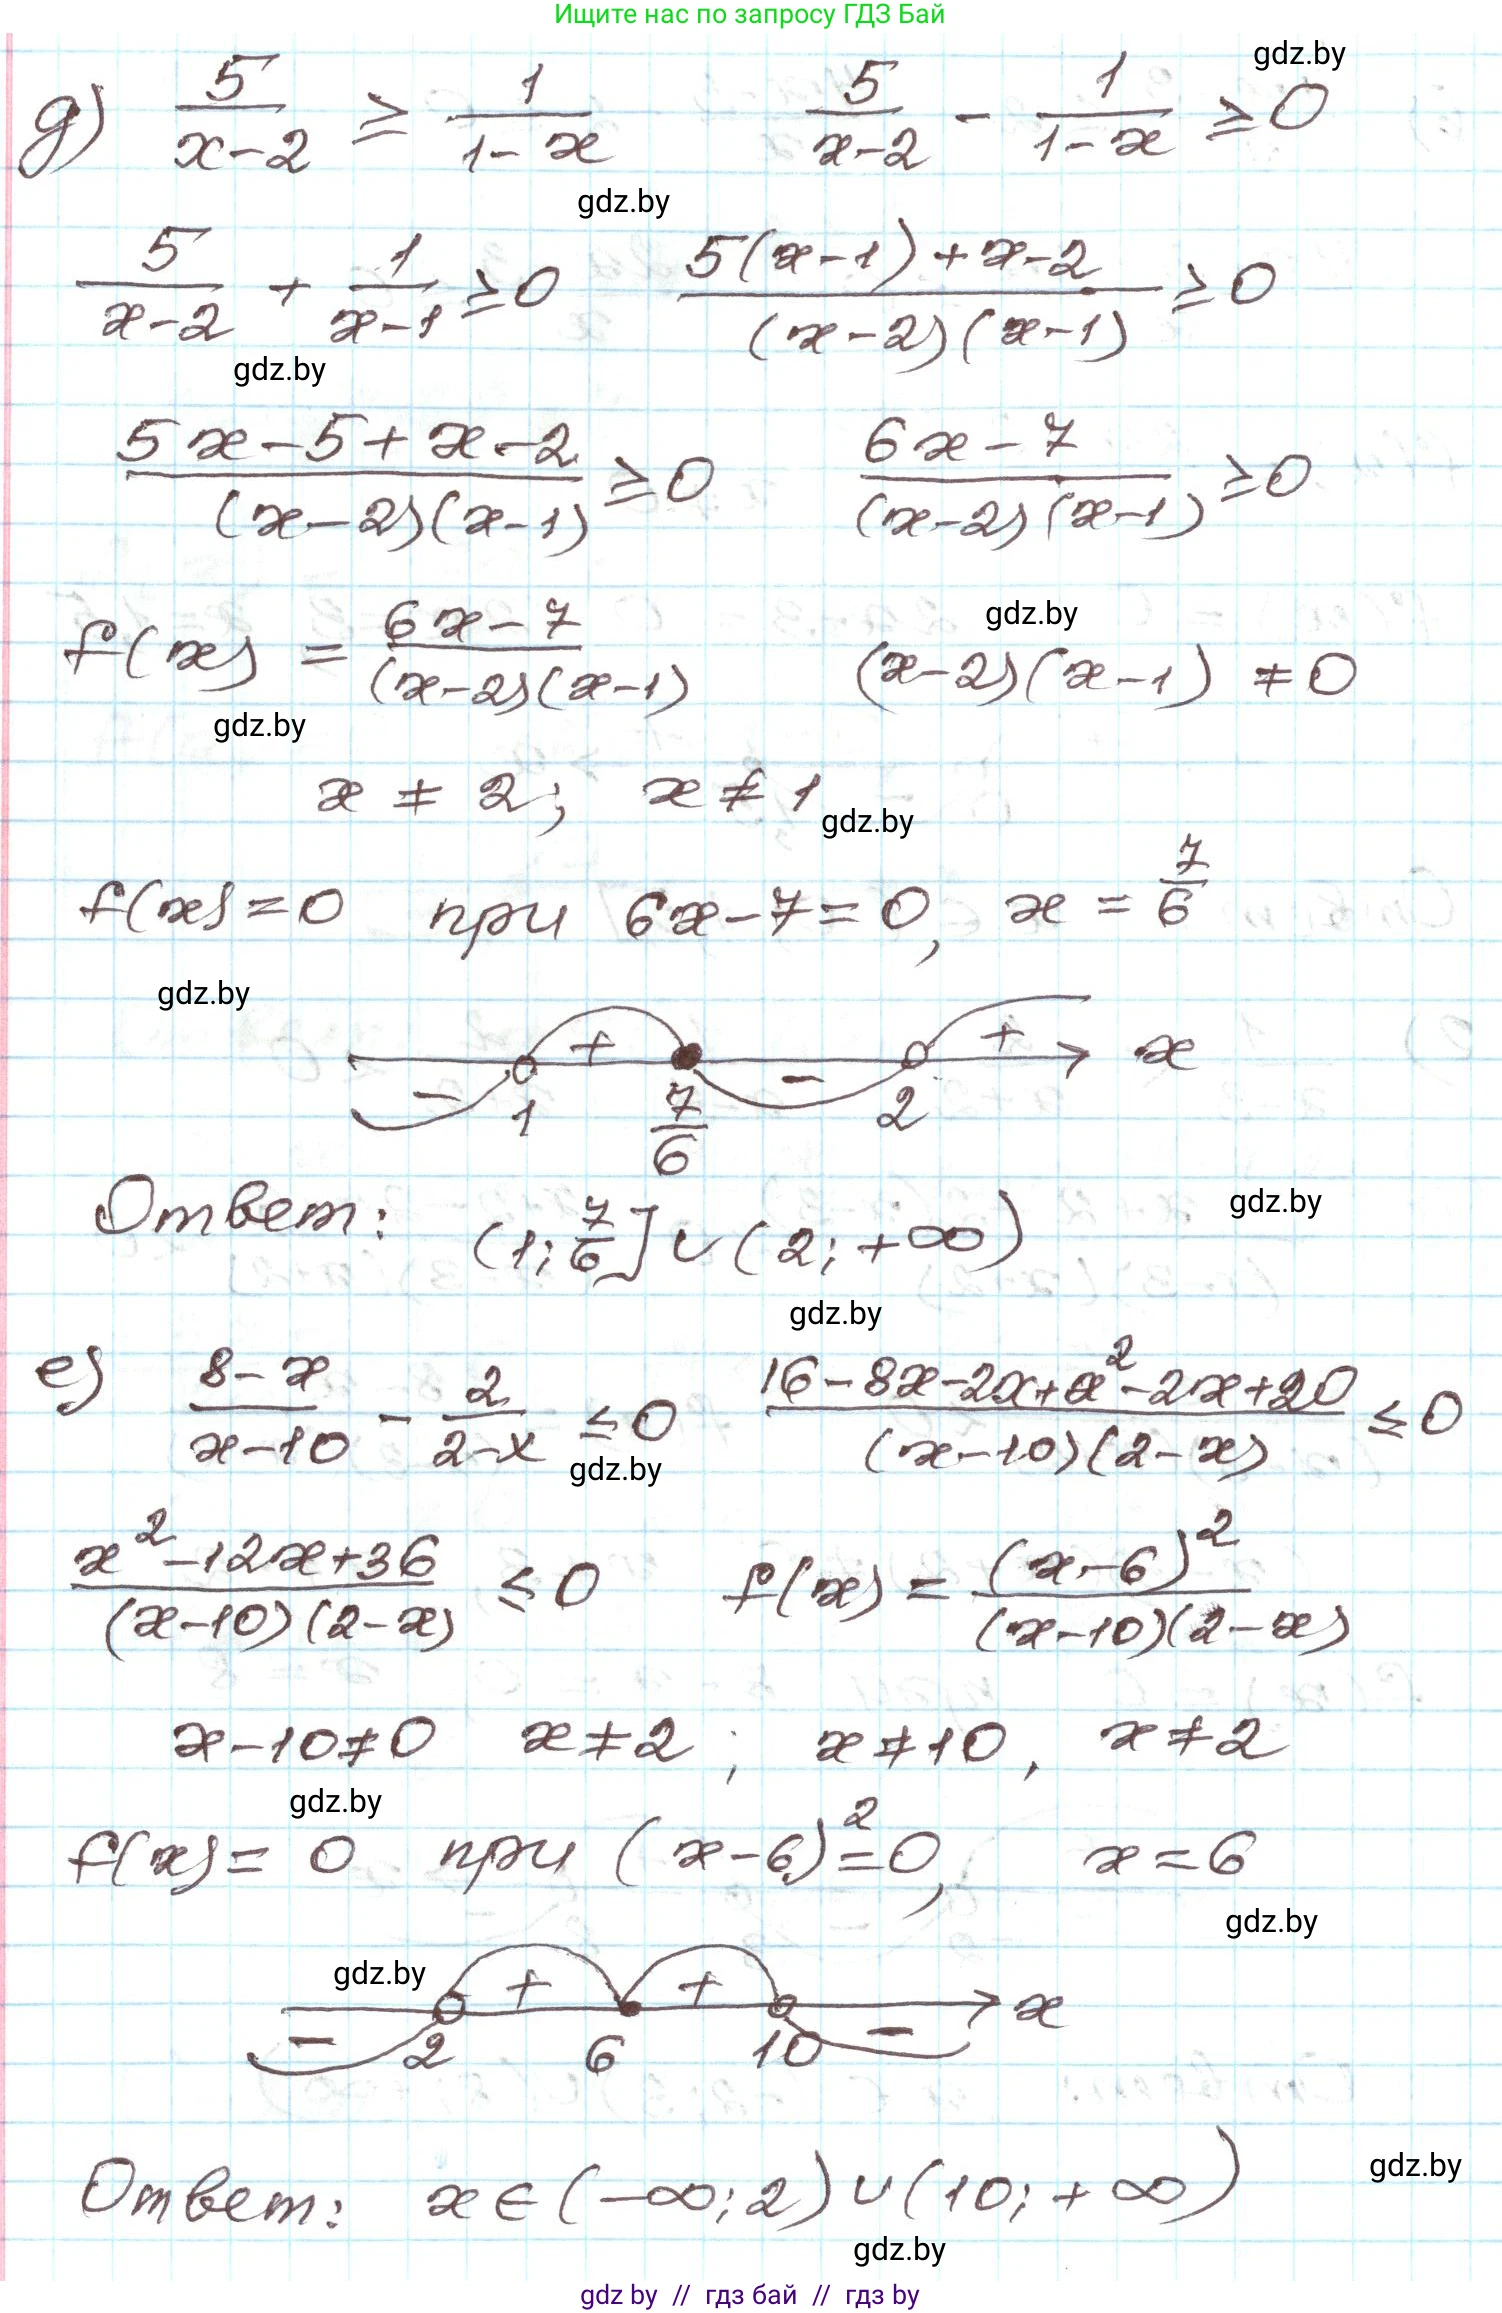 Ищите нас по запросу ГДЗ Бай
gdz.by
д) 5/(x-2) ≥ 1/(1-x)   5/(x-2) - 1/(1-x) ≥ 0
gdz.by
5/(x-2) + 1/(x-1) ≥ 0   (5(x-1)+x-2)/((x-2)(x-1)) ≥ 0
gdz.by
(5x-5+x-2)/((x-2)(x-1)) ≥ 0   (6x-7)/((x-2)(x-1)) ≥ 0
gdz.by
f(x) = (6x-7)/((x-2)(x-1))   (x-2)(x-1) ≠ 0
gdz.by
x ≠ 2; x ≠ 1
gdz.by
f(x)=0 при 6x-7=0, x = 7/6
gdz.by
- + - + x
1 7/6 2
Ответ: (1; 7/6] ∪ (2; +∞)
gdz.by
gdz.by
е) (8-x)/(x-10) - 2/(2-x) ≤ 0   (16-8x-2x+x²-2x+20)/((x-10)(2-x)) ≤ 0
gdz.by
(x²-12x+36)/((x-10)(2-x)) ≤ 0   f(x) = (x-6)²/((x-10)(2-x))
x-10≠0 x≠2; x≠10, x≠2
gdz.by
f(x)= 0 при (x-6)²=0, x=6
gdz.by
gdz.by
- + + - x
2 6 10
Ответ: x∈(-∞;2)∪(10;+∞)
gdz.by
gdz.by
gdz by // гдз бай // гдз by